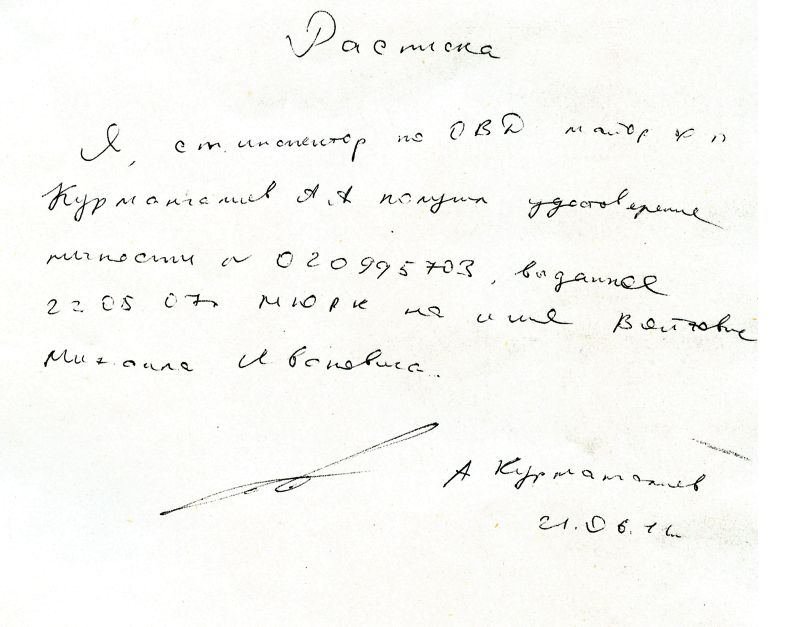 Расписка
Я, ст. инспектор по ОВД майор ж п
Курмангалиев А.А получил удостоверение
личности № 020995703, выданное
22 05 07г МЮРК на имя Войтович
Михаила Ивановича.
А Курмангалиев
21.06.11г